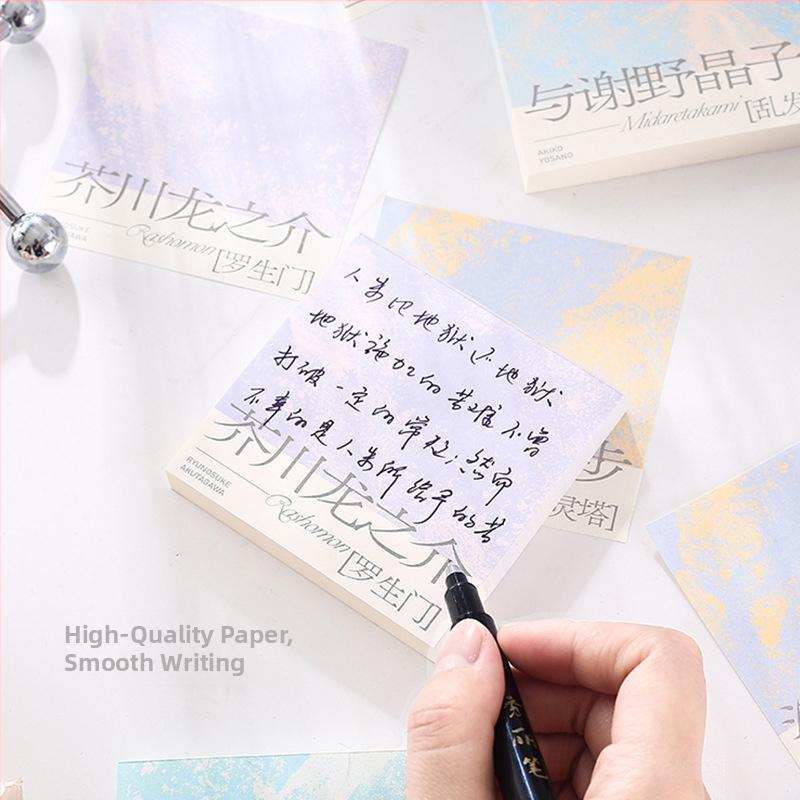 与谢野晶子
Midaretakami
[乱发
AKIKO
YOSANO
芥川龙之介
Rashomon
[罗生门]
人类比地獄还地獄
地獄施加的苦难不曾
打破一定的常规;然而
不幸的是人类所给予的苦
芥川龙之介
RYUNOSUKE
AKUTAGAWA
Rashomon
[罗生门]
步
灵塔]
High-Quality Paper,
Smooth Writing
秀丽笔